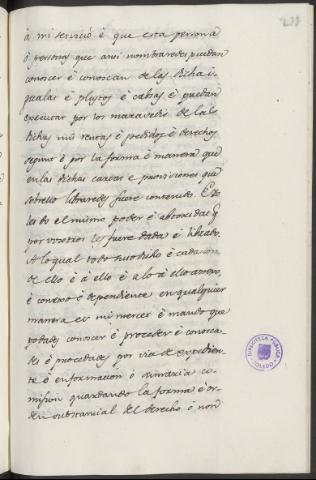 233
á mi servicio é que esta persona
ó personas que ansi nombraredes puedan
conocer é conoscan de las dichas
qualas é pleytos é cabsas é puedan
executar por los maravedis de las
dichas mis rentas é pedidos é derechos
segunt é por la forma é manera que
en las dichas cartas é provisiones que
sobrello libraredes fuere contenido. E
les do el mismo poder é abtoridat q
por vosotros les fuere dada é librado.
A lo qual todo suso dicho é cada
de ello é á ello é á lo á ello anexo,
é conexo é dependiente en qualquier
manera es mi merced é mando que
podades conoscer é proceder é conosca-
des é procedades por via de expedien-
te é enformacion ó sumaria co-
mision guardando la forma é or-
den substancial del derecho ó non
BIBLIOTECA PUBLICA
TOLEDO